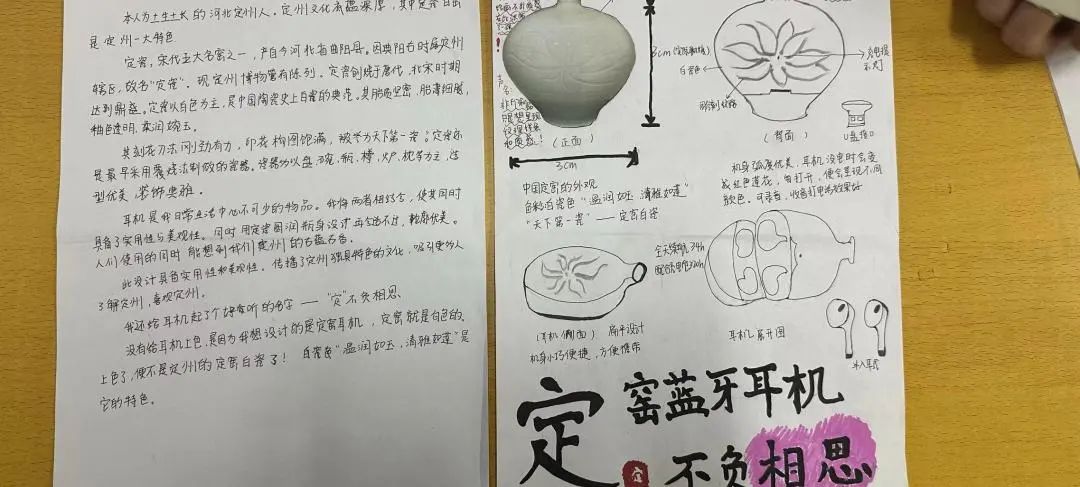 本人为土生土长的河北定州人。定州文化底蕴深厚，其中定瓷白出
是定州一大特色
定窑，宋代五大名窑之一，产自今河北省曲阳县。因曲阳古时属定州
辖区，故名“定瓷”。现定州博物馆有陈列。定窑创烧于唐代，北宋时期
达到鼎盛。定窑以白色为主，是中国陶瓷史上白瓷的典范。其胎质坚密，胎薄细腻，
釉色透明，柔润媲玉。
其刻花刀法刚劲有力，印花构图饱满，被誉为天下第一瓷。定窑还
是最早采用覆烧法制做的瓷器。瓷器功以盘、碗、瓶、樽、炉、枕等为主，造
型优美，装饰典雅。
耳机是我日常生活中必不可少的物品。我将两者相结合，使其同时
具备了实用性与美观性。同时用定瓷圆润瓶身设计再合适不过，轮廓优美。
人们使用的同时能想到我们定州的古蕴古香。
此设计具备实用性和美观性。传播了定州独具特色的文化，吸引更多人
了解定州，喜欢定州。
我还给耳机起了个好听的名字——“定”不负相思
没有给耳机上色，是因为我想设计的是定窑耳机，定窑就是白色的，
上色了，便不是定州的定窑白瓷了！白瓷色“温润如玉，清雅如莲”是
它的特色。
3cm
(正面)
3cm
白瓷色
充电提
示灯
U盘接口
(背面)
中国定窑的外观
色彩白瓷色“温润如玉，清雅如莲”
“天下第一瓷”——定窑白瓷
机身弧度优美，耳机没电时会变
成红色莲花，每打开，便会呈现不同
颜色。可录音，收音打电话效果好
(耳机侧面) 扁平设计
机身小巧便捷，方便携带
全天续航24h
耳机展开图
半入耳式
定
窑蓝牙耳机
定
不负相思